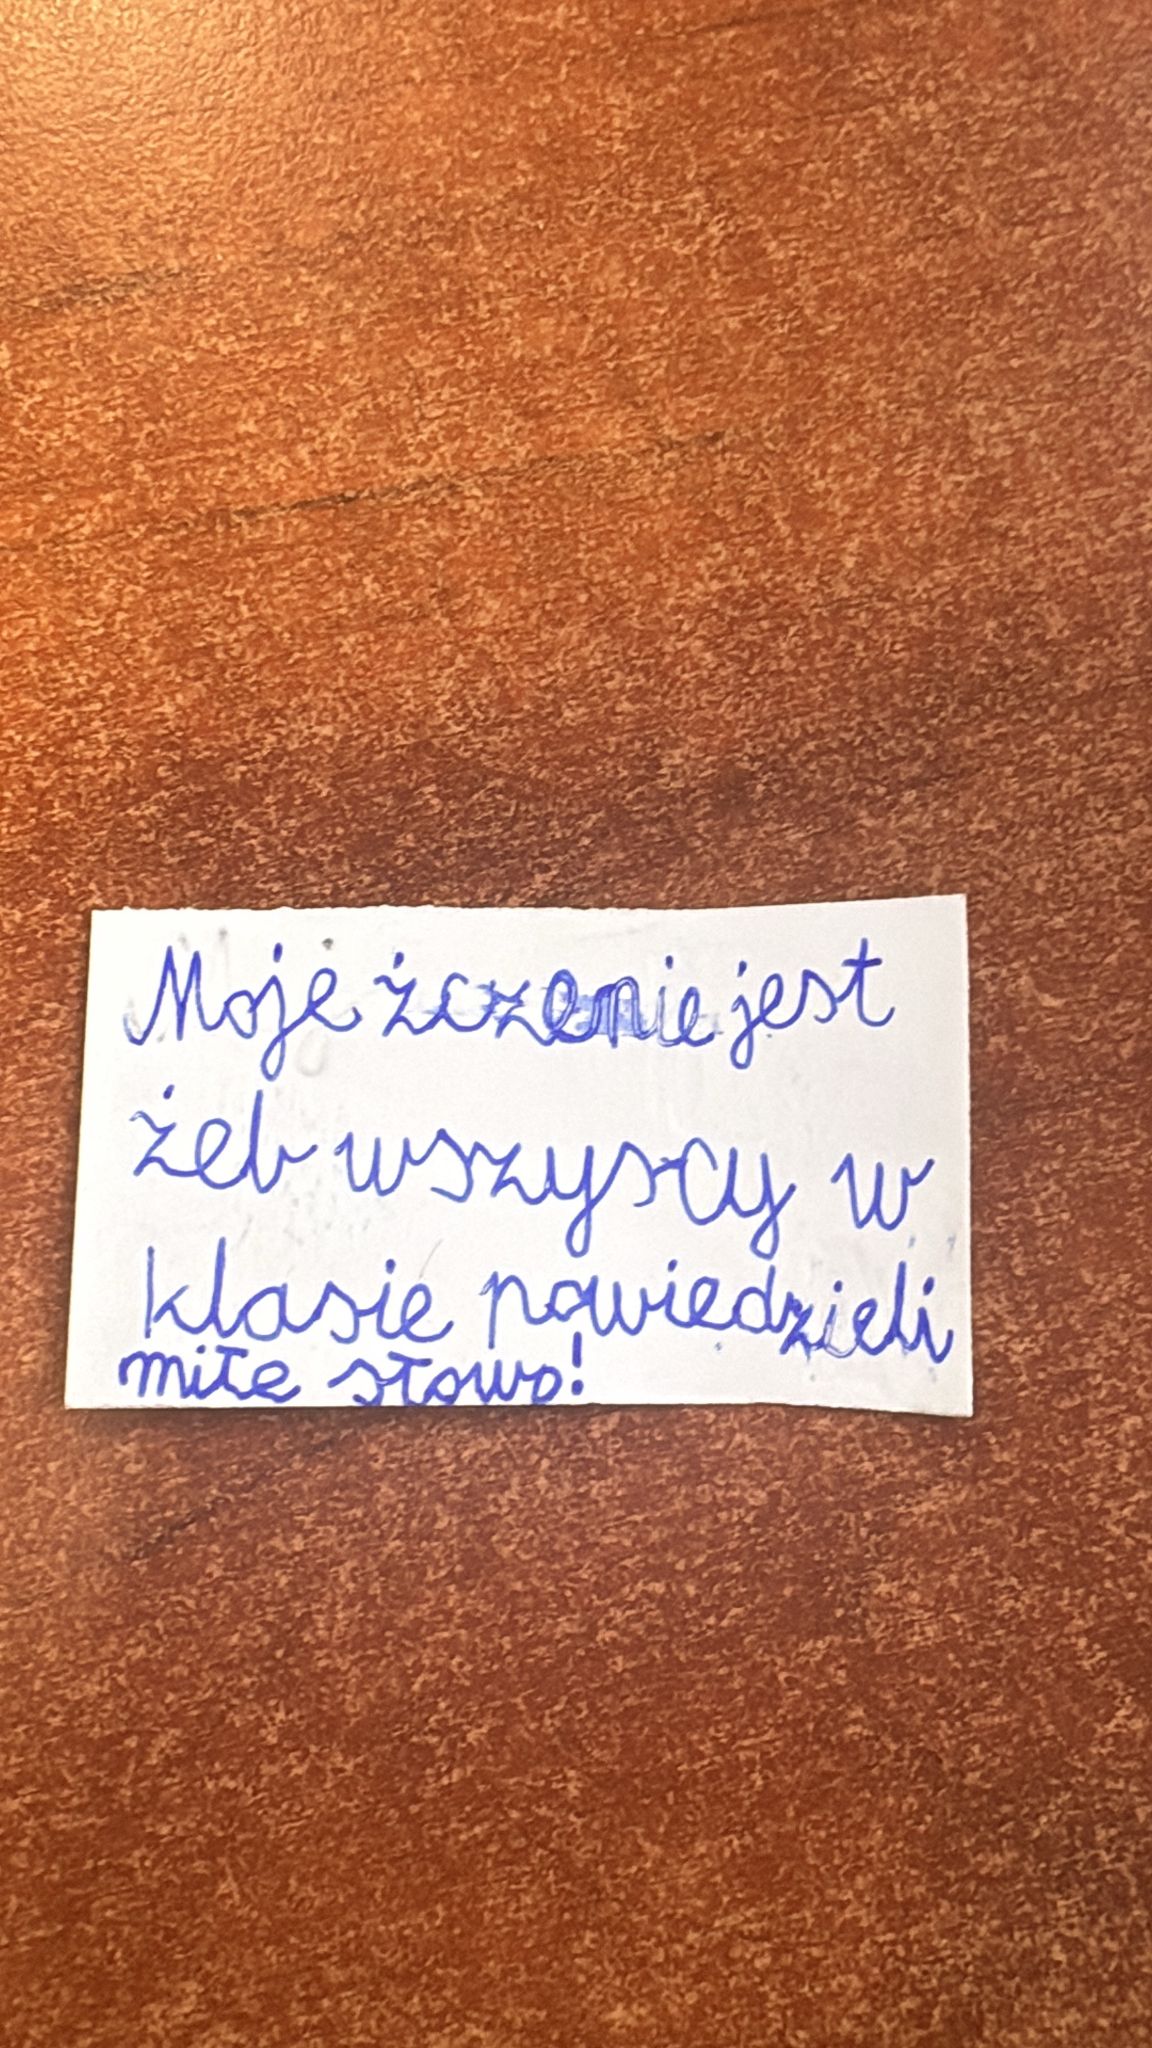 Moje żczenie jest
żeb wszyscy w
klasie powiedzieli
miłe słowo!